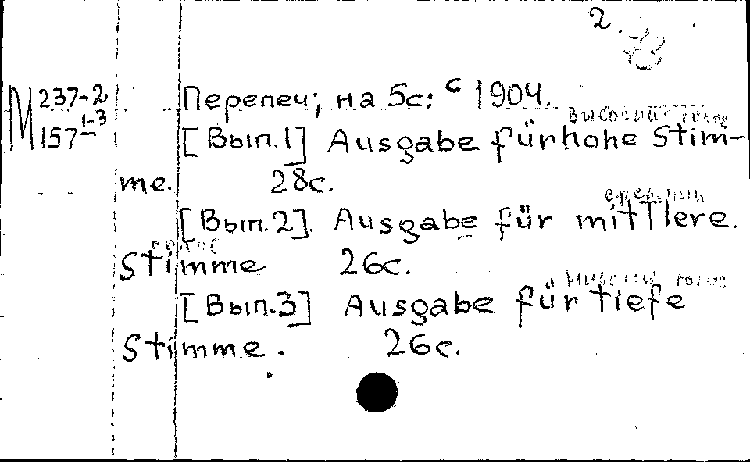 2.
М 237-2
157 1-3
Перепеч; на 5с: с 1904.
высокий голос
[Вып.1] Ausgabe für hohe Stim-
me. 28с.
средний
[Вып.2]. Ausgabe für mittlere.
голос
Stimme 26с.
низкий голос
[Вып.3] Ausgabe für tiefe
Stimme. 26с.